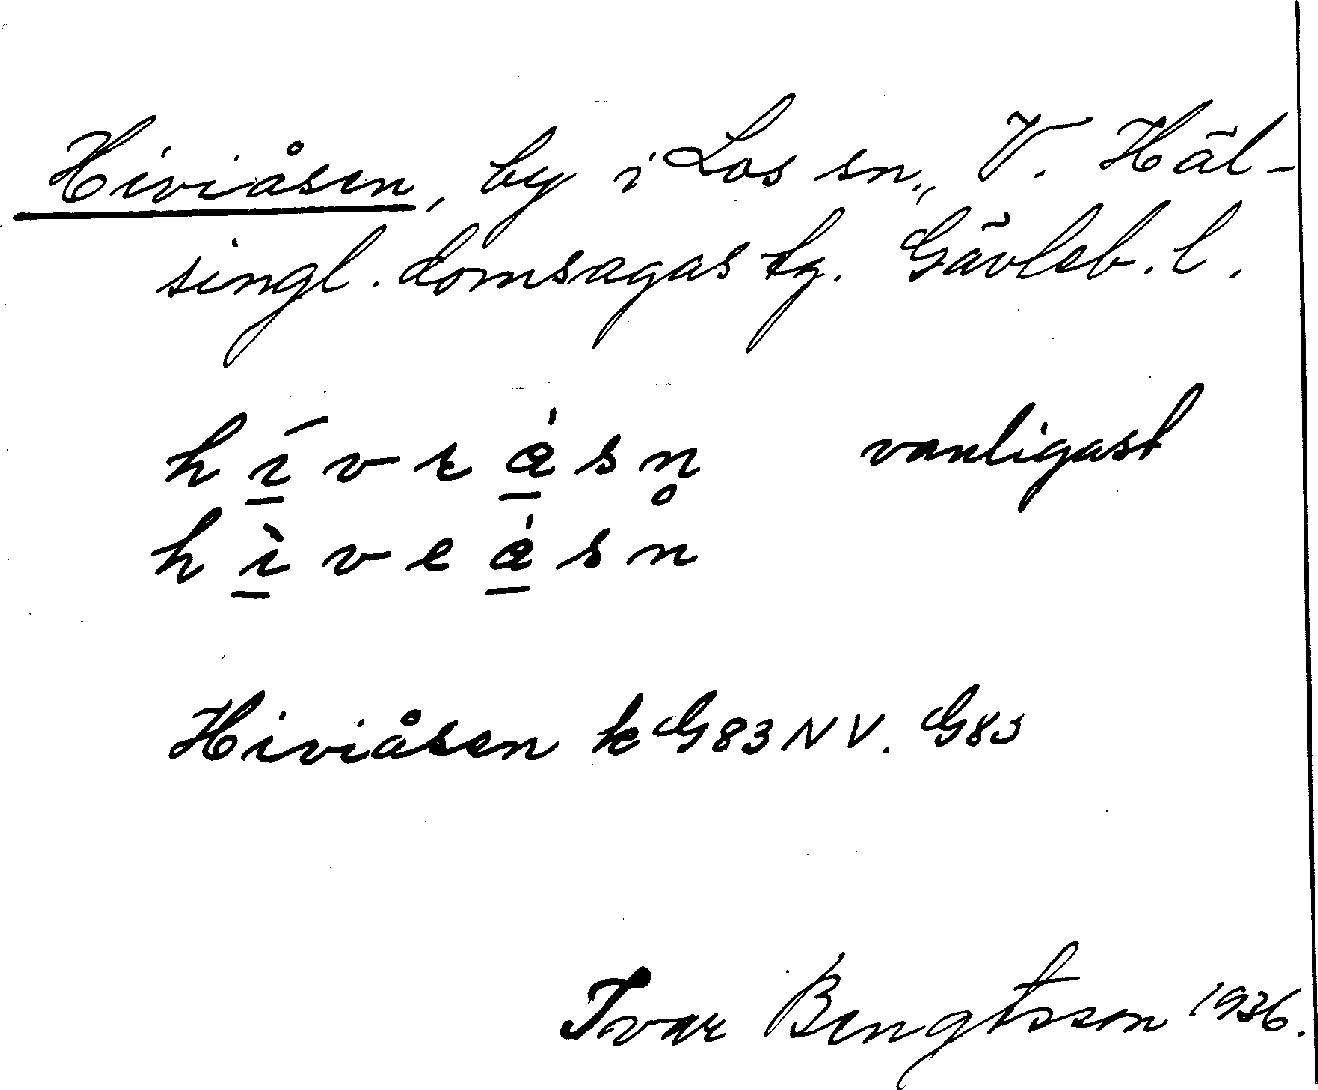 Hiviåsen, by i Los sn., V. Häl-
singl. domsagas tg. Gävleb. l.
hívɪåsn̥ vanligast
hìveåsn
Hiviåsen k G83NV. G83
Ivar Bengtsson 1936.